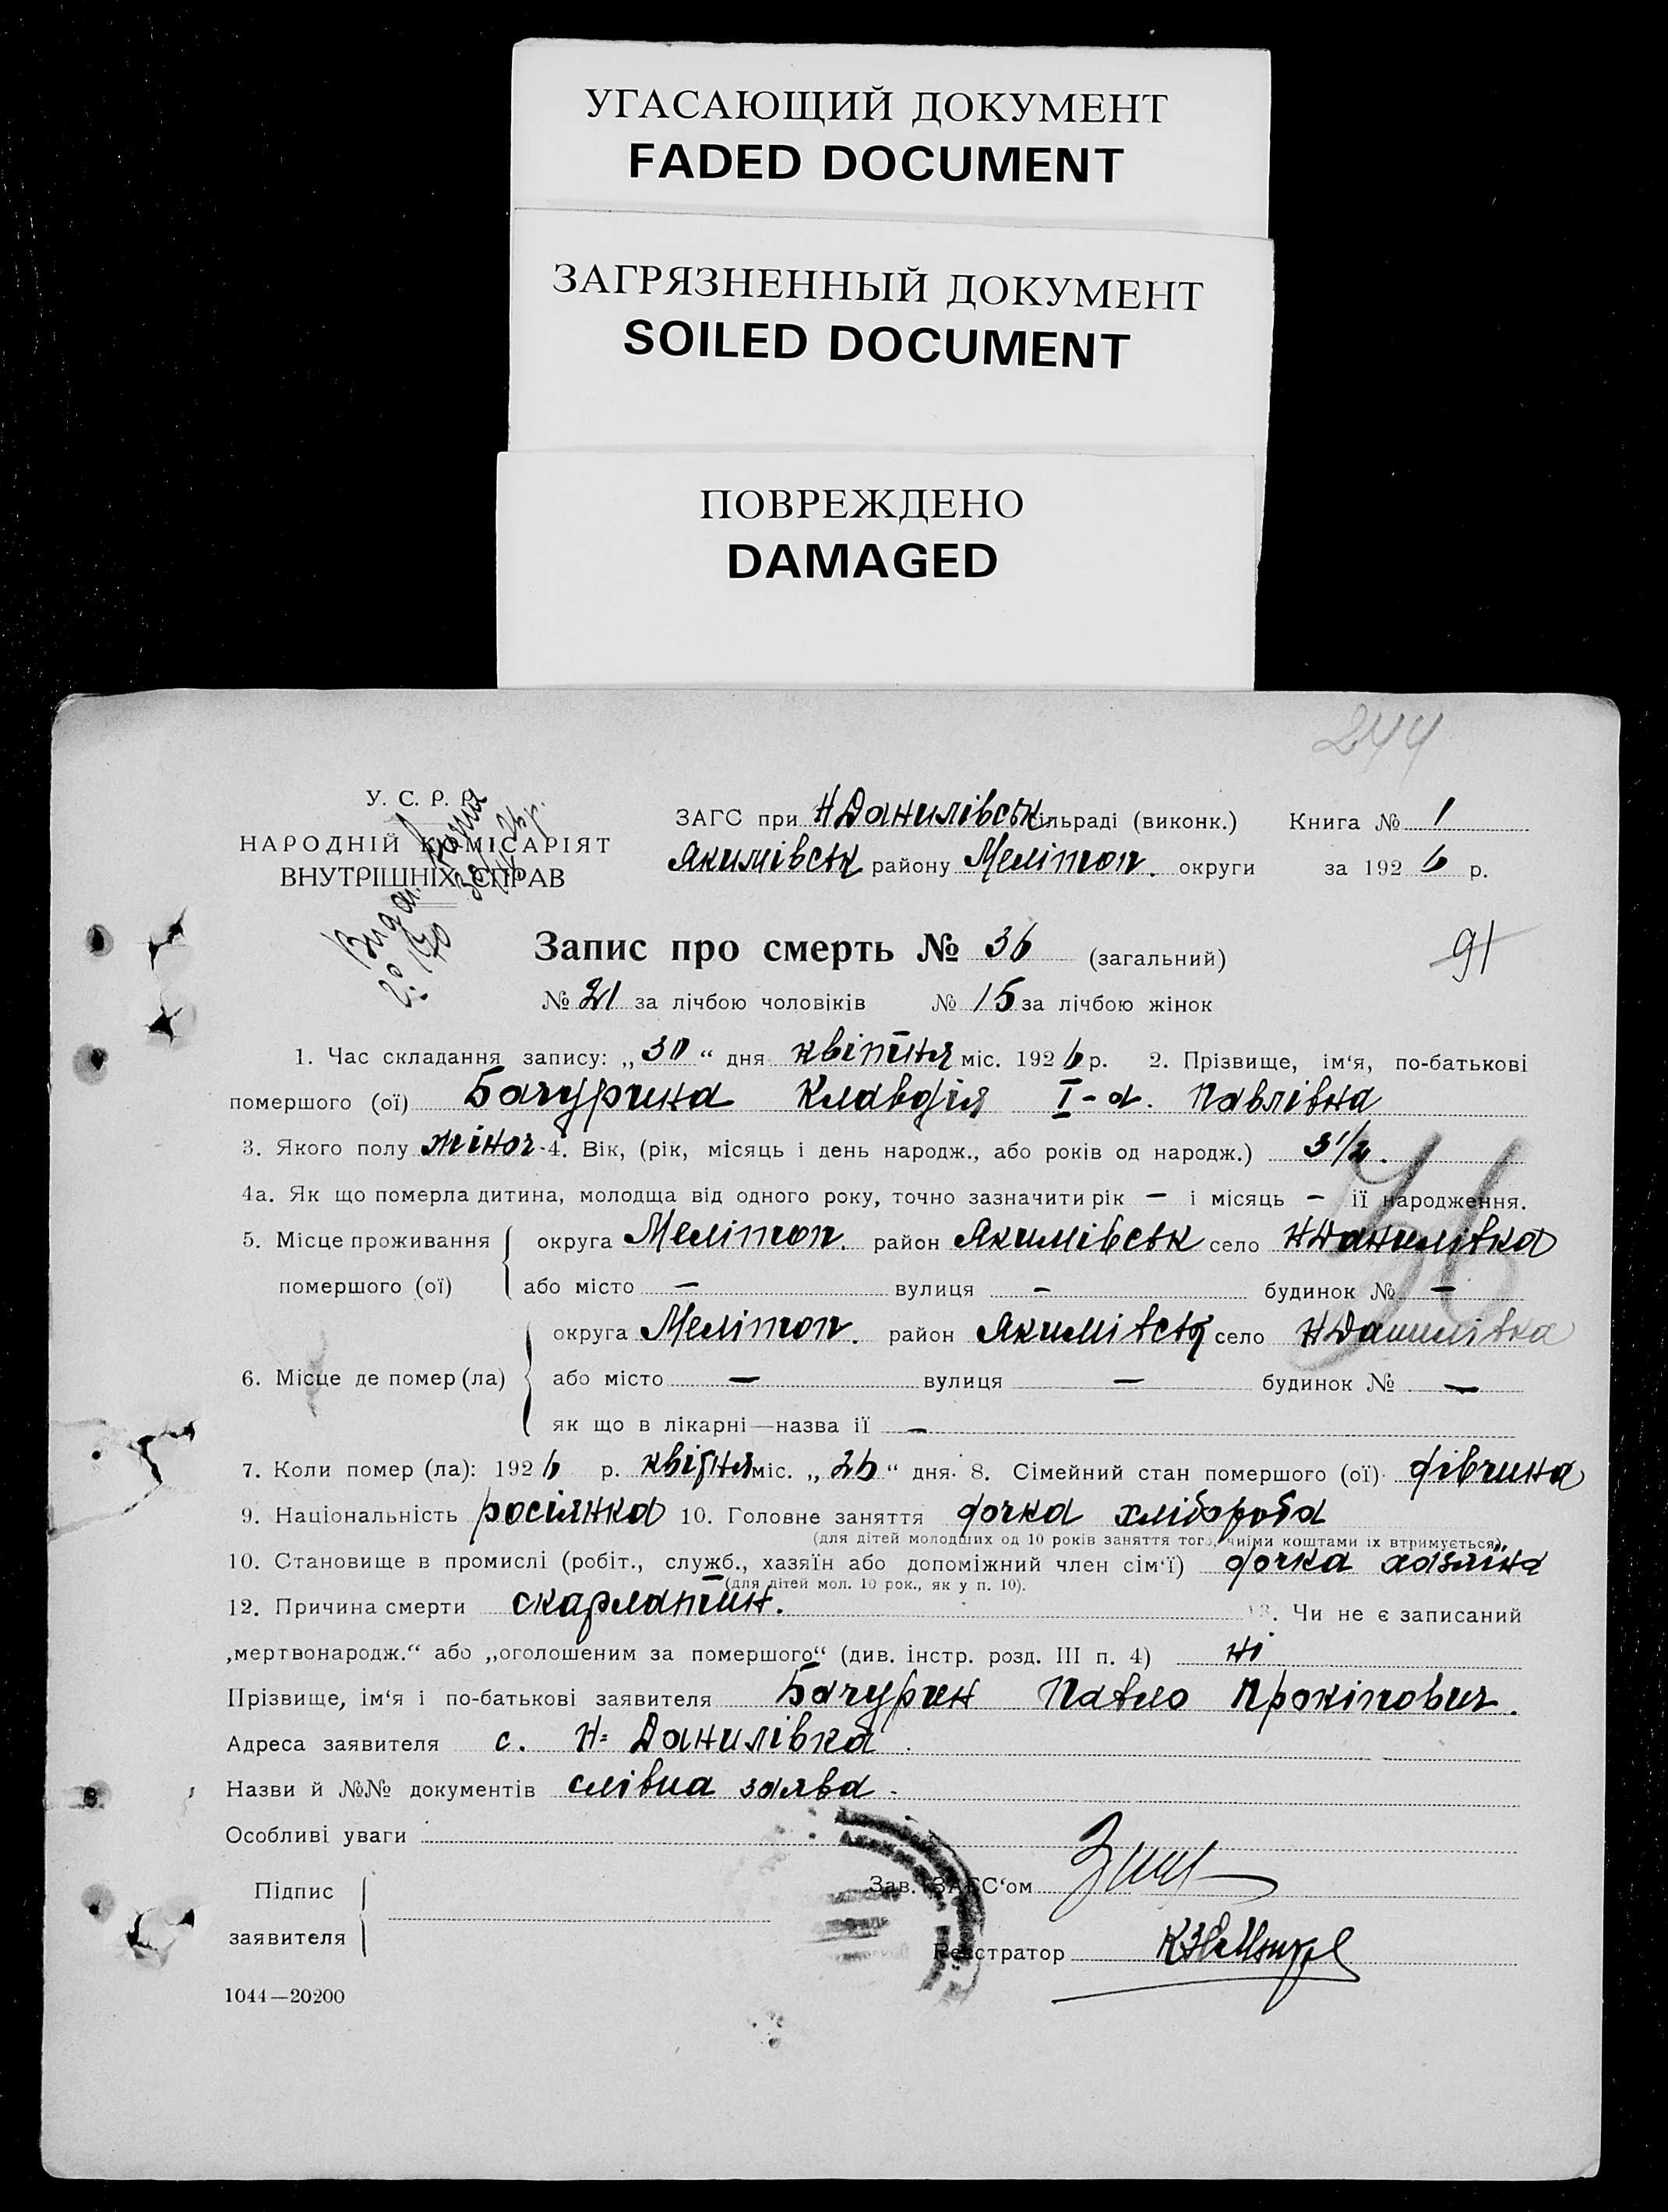 УГАСАЮЩИЙ ДОКУМЕНТ
FADED DOCUMENT
ЗАГРЯЗНЕННЫЙ ДОКУМЕНТ
SOILED DOCUMENT
ПОВРЕЖДЕНО
DAMAGED
244
У. С. Р. Р.
НАРОДНІЙ КОМІСАРІЯТ
ВНУТРІШНІХ СПРАВ
ЗАГС при Н Данилівськ сільраді (виконк.) Книга № 1
Якимівськ району Мелітоп. округи за 1926 р.
Запис про смерть № 36 (загальний)
91
№ 21 за лічбою чоловіків № 15 за лічбою жінок
1. Час складання запису: „30“ дня квітня міс. 1926 р. 2. Прізвище, ім‘я, по-батькові
помершого (ої) Бачурина Клавдія І-а. Павлівна
3. Якого полу жіноч. 4. Вік, (рік, місяць і день народж., або років од народж.) 3 1/2.
4а. Як що померла дитина, молодща від одного року, точно зазначити рік — і місяць — її народження.
36
5. Місце проживання округа Мелітоп. район Якимівськ село Н Данилівка
помершого (ої) або місто — вулиця — будинок № —
округа Мелітоп. район Якимівськ село Н Данилівка
6. Місце де помер (ла) або місто — вулиця — будинок № —
як що в лікарні—назва її —
7. Коли помер (ла): 1926 р. квітня міс. „26“ дня. 8. Сімейний стан помершого (ої) дівчина
9. Національність росіянка 10. Головне заняття дочка хлібороба
(для дітей молодших од 10 років заняття того, чиїми коштами їх втримується).
10. Становище в промислі (робіт., служб., хазяїн або допоміжний член сім‘ї) дочка хазяїна
(для дітей мол. 10 рок., як у п. 10).
12. Причина смерти скарлатин. 13. Чи не є записаний
„мертвонародж.“ або „оголошеним за помершого“ (див. інстр. розд. III п. 4) ні
Прізвище, ім‘я і по-батькові заявителя Бачурин Павло Прокіпович.
Адреса заявителя с. Н= Данилівка
Назви й №№ документів слівна заява
Особливі уваги
Підпис
заявителя
Зав. ЗАГС‘ом
Реєстратор
1044—20200